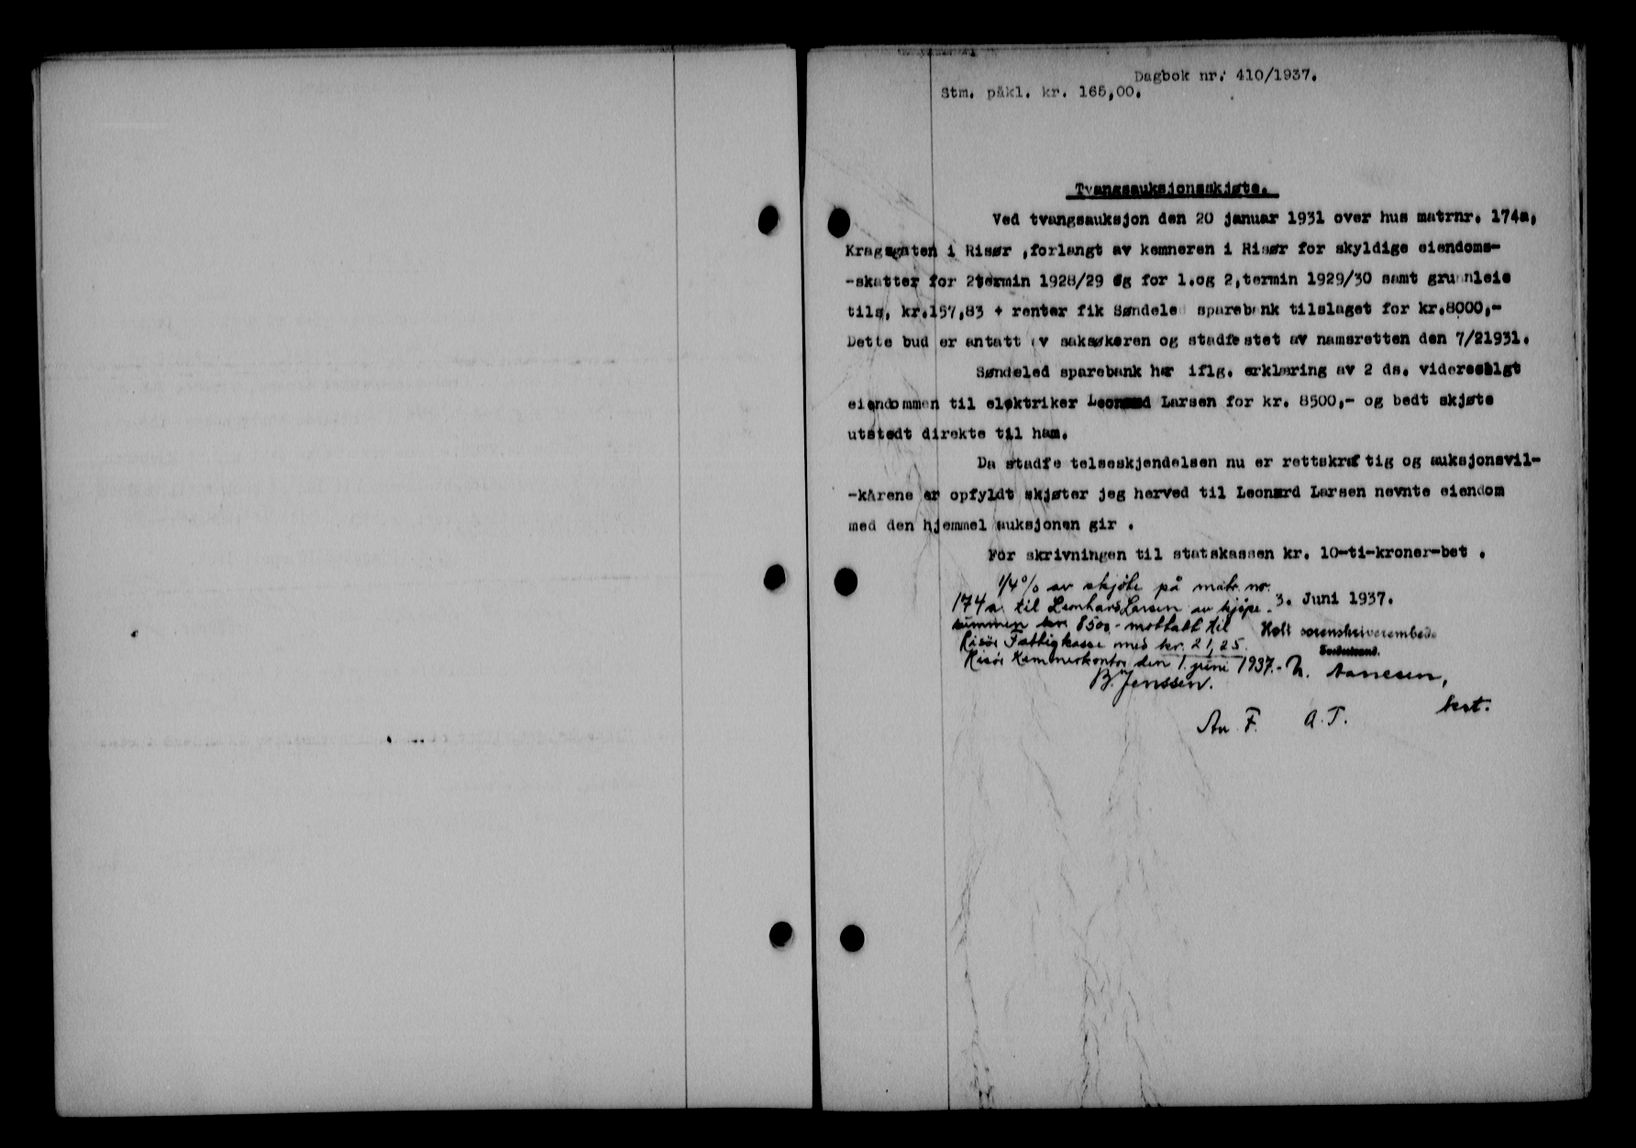 Dagbok nr. 410/1937.
Stm. påkl. kr. 165,00.
Tvangsauksjonsskjøte.
Ved tvangsauksjon den 20 januar 1931 over hus matrnr. 174a,
Kragsgaten i Risør ,forlangt av kemneren i Risør for skyldige eiendoms-
-skatter for 2termin 1928/29 og for 1.og 2,termin 1929/30 samt grunnleie
tils, kr.157,83 + renter fik Søndele sparebank tilslaget for kr.8000,-
Dette bud er antatt av saksøkeren og stadfestet av namsretten den 7/21931.
Søndeled sparebank har iflg. erklæring av 2 ds. videresolgt
eiendommen til elektriker Leonard Larsen for kr. 8500,- og bedt skjøte
utstedt direkte til ham.
Da stadfe telseskjendelsen nu er rettskraftig og auksjonsvil-
-kårene er opfyldt skjøter jeg herved til Leonard Larsen nevnte eiendom
med den hjemmel auksjonen gir .
For skrivningen til statskassen kr. 10-ti-kroner-bet .
1/4% av skjøte på matr. nr.
174a til Leonhard Larsen av kjøpe-
summen kr. 8500,- mottatt til
Risør Fattigkasse med kr. 21,25.
Risør Kemnerkontor den 1. juni 1937.-
B. Jenssen.
3. Juni 1937.
Holt sorenskriverembede
Tvedestrand.
N. Aanesen,
kst.
An. F. A.T.